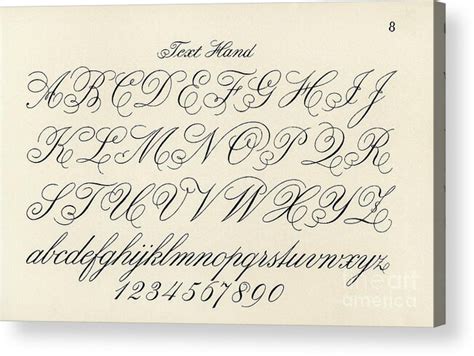 8
Text Hand
A B C D E F G H I J
K L M N O P Q R
S T U V W X Y Z
abcdefghijklmnopqrstuvwxyz
1234567890
fine art
america